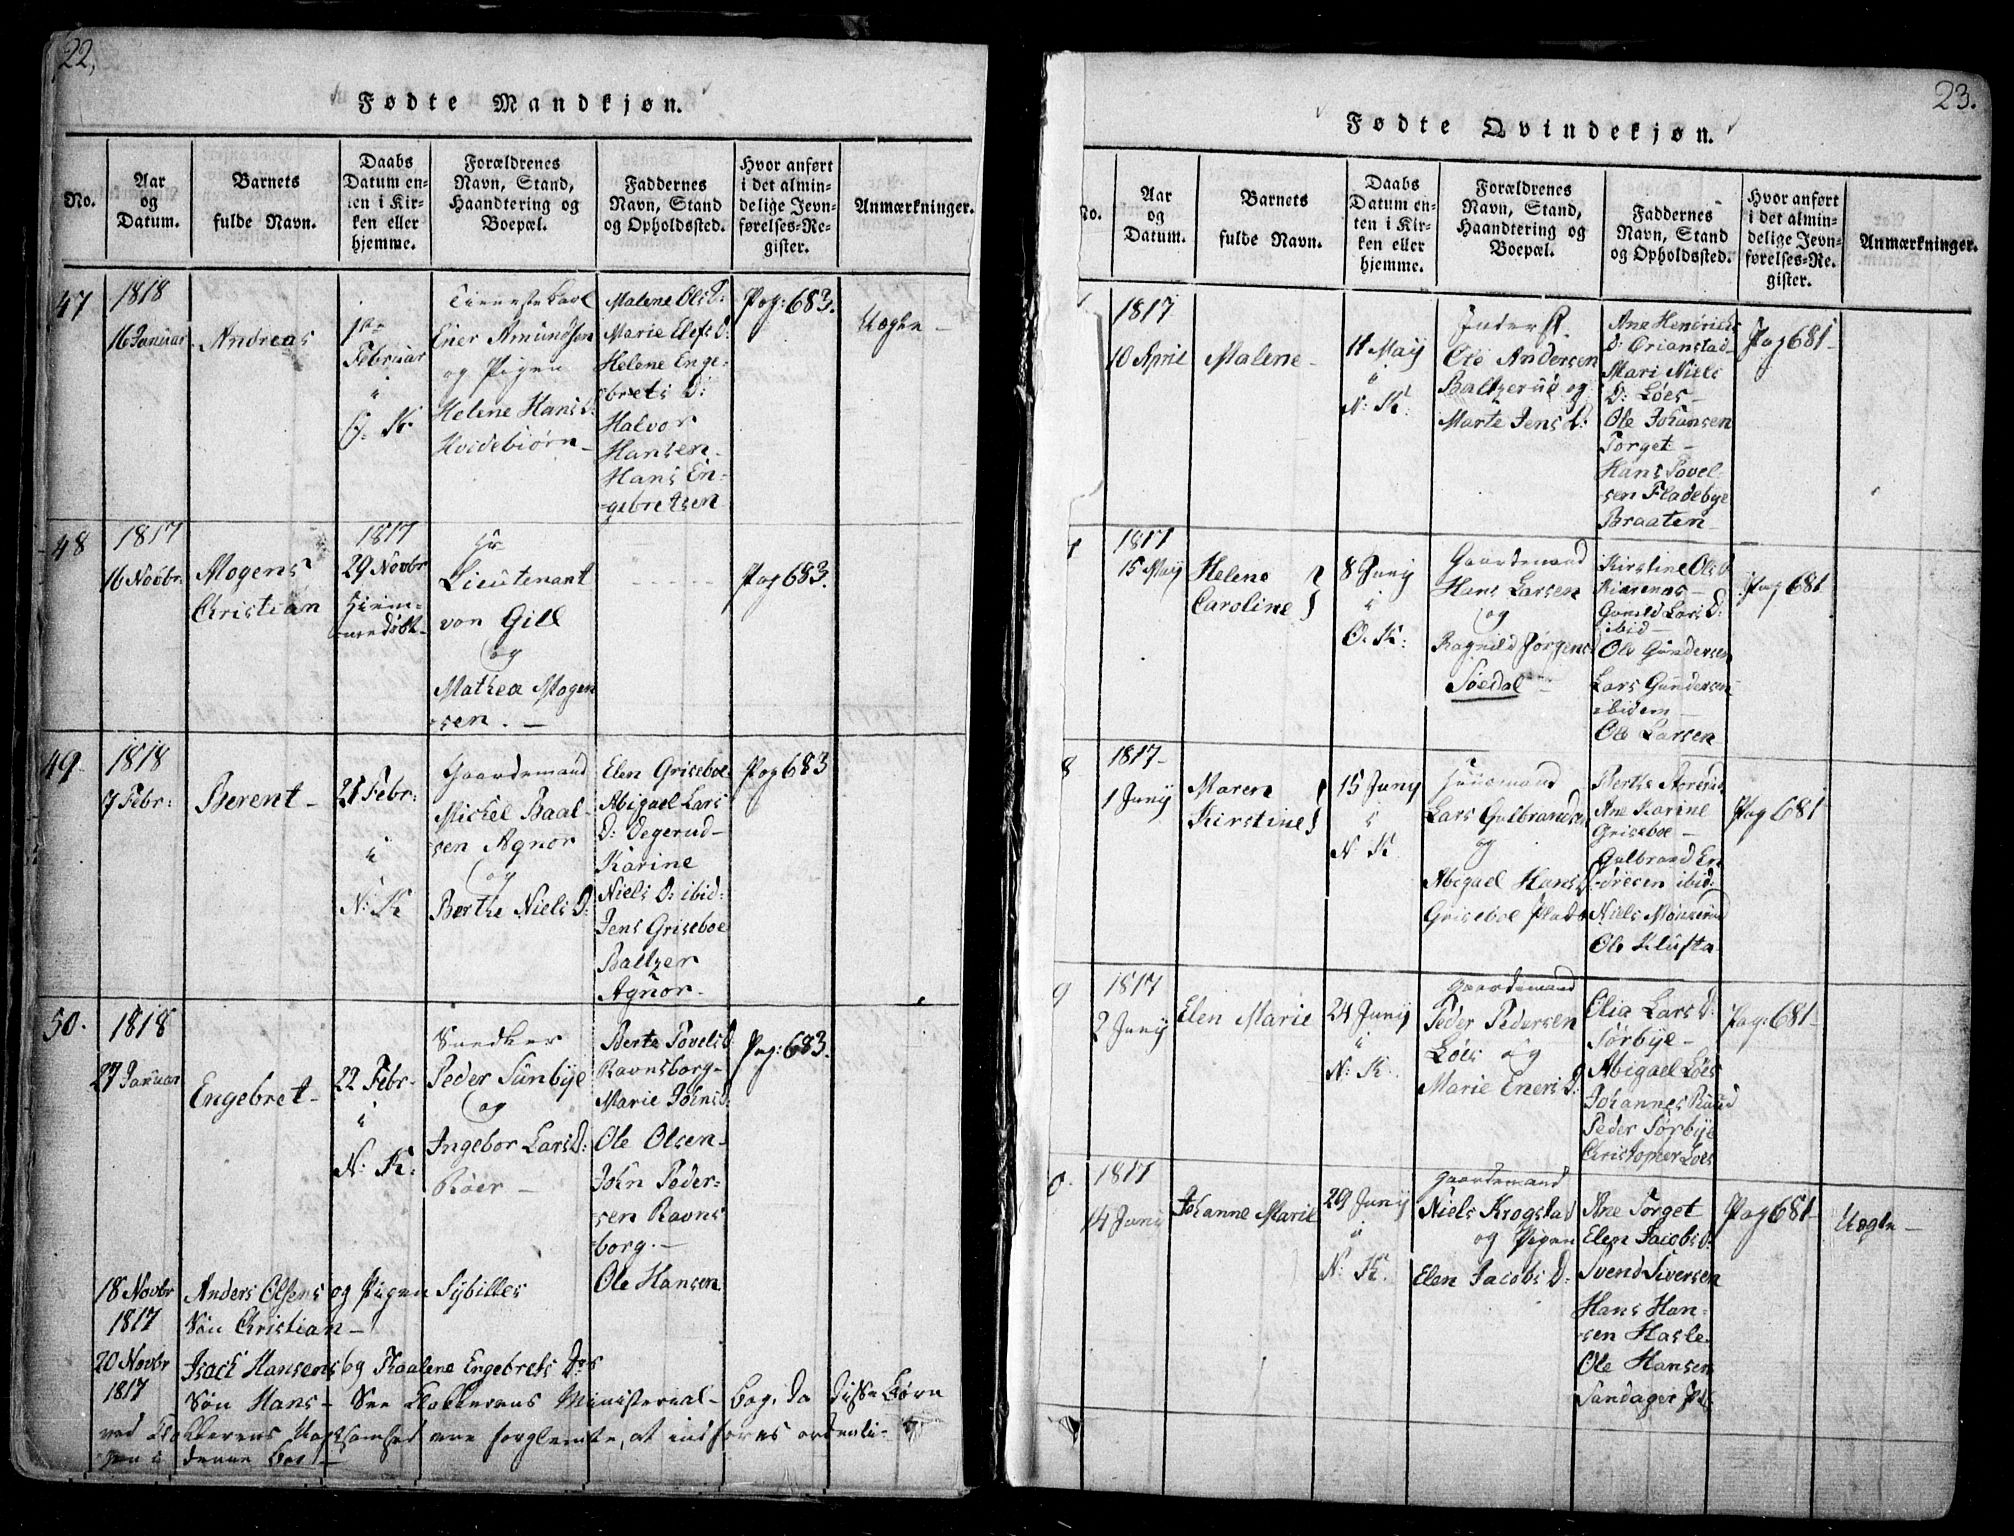 22,
Fødte Mandkjøn.
No.
Aar
og
Datum.
Barnets
fulde Navn.
Daabs
Datum en-
ten i Kir-
ken eller
hjemme.
Forældrenes
Navn, Stand,
Haandtering og
Boepæl.
Faddernes
Navn, Stand
og Opholdssted.
Hvor anført
i det almin-
delige Jevn-
førelses-Re-
gister.
Anmærkninger.
47
1818
16 Januar
Andreas
1ste
Februar
i
K.
Ener Amundsen
og Pigen
Helene Hans D:
Hvidebiørn-
Malene Ols D:
Marie Elefs D:
Helene Enge-
brets D:
Halvor
Hansen-
Hans En-
gebretsen
Pag: 683.
Uægte -
48
1817
16 Novbr.
Mogens
Christian
1817
29 Novbr
Hiem-
medøbt-
Hr
Lieutenant
von Gill
og
Mathea Mogen
sen. -
Pag 683.
49
1818
7 Febr:
Berent-
21 Febr:
i
N: K
Gaardemand
Michel Baal-
sen Agnor
og
Berthe Niels D:
Elen Griseboe
Abigael Lars
D: Degerud-
Karine
Niels D: ibid:
Jens Griseboe
Baltzer
Agnor-
Pag 683
50.
1818
27 Januar
Engebret-
22 Febr-
i
N: K:
Snedker
Peder Sunbye
og
Ingebor Lars D:
Röer -
Berte Povels D:
Ravnsborg-
Marie Johns D:
Ole Olsen-
John Peder-
sen Ravns
borg.-
Ole Hansen
Pag: 683.
18 Novbr
1817
Anders Olsens og Pigen Sybilles
Søn Christian-
20 Novbr
1817
Isach Hansens og Kaalene Engebrets D:
Søn Hans- See Klokkerens Ministerial- Bog, da disse Børn
ved Klokkerens Uagtsomhed ere forglemte, at indføres ordentli-
gen i denne Bog-
23.
Fødte Qvindekjøn.
No.
Aar
og
Datum.
Barnets
fulde Navn.
Daabs
Datum en-
ten i Kir-
ken eller
hjemme.
Forældrenes
Navn, Stand,
Haandtering og
Boepæl.
Faddernes
Navn, Stand
og Opholdssted.
Hvor anført
i det almin-
delige Jevn-
førelses-Re-
gister.
Anmærkninger.
1817
10 April
Malene-
11 Maij
i
N: K:
Inderst.
Ole Andersen
Baltzerud og
Marte Jens D:
Ane Hendrichs
D: Ørianstad-
Mari Niels
D: Løes-
Ole Johansen
Torget-
Hans Povel
sen Fladebye
Braaten-
Pag 681-
1817
15 Maij
Helene
Caroline
8 Junij
i
O. K:
Gaardemand
Hans Larsen
og
Ragnild Jørgens
Søedal
Kirstine Ols D
Kiærenes-
Gunild Lars D:
ibid-
Ole Gundersen
Lars Gundersen
ibidem-
Ole Larsen
Pag 681
8
1817-
1 Junij
Maren
Kirstine
15 Junij
i
N. K.
Huusmand
Lars Gulbrandsen
og
Abigael Hans D:
Griseboe Plads
Ane Karine
Griseboe-
Gulbrand En
dresen ibid:
Niels Mønserud
Ole Klufta
Pag 681
9
1817
2 Junij
Elen Marie
24 Junij
i
N. K.
Gaardemand
Peder Pedersen
Løes og
Marie Eneris D:
Elia Lars D:
Sørbye-
Abigael Løes
Johannes Ruud
Peder Sørbye
Christopher Løes
Pag: 681-
0.
1817
14 Junij
Johanne Marie
29 Junij
i
N: K.
Gaardemand
Niels Krogstad
og Pigen
Elen Jacobs D:
Ane Torget
Elen Jacobs D:
Svend Siversen
Hans Han-
sen Hasle
Ole Hansen
Sandager Pl:
Pag 681-
Uægte-